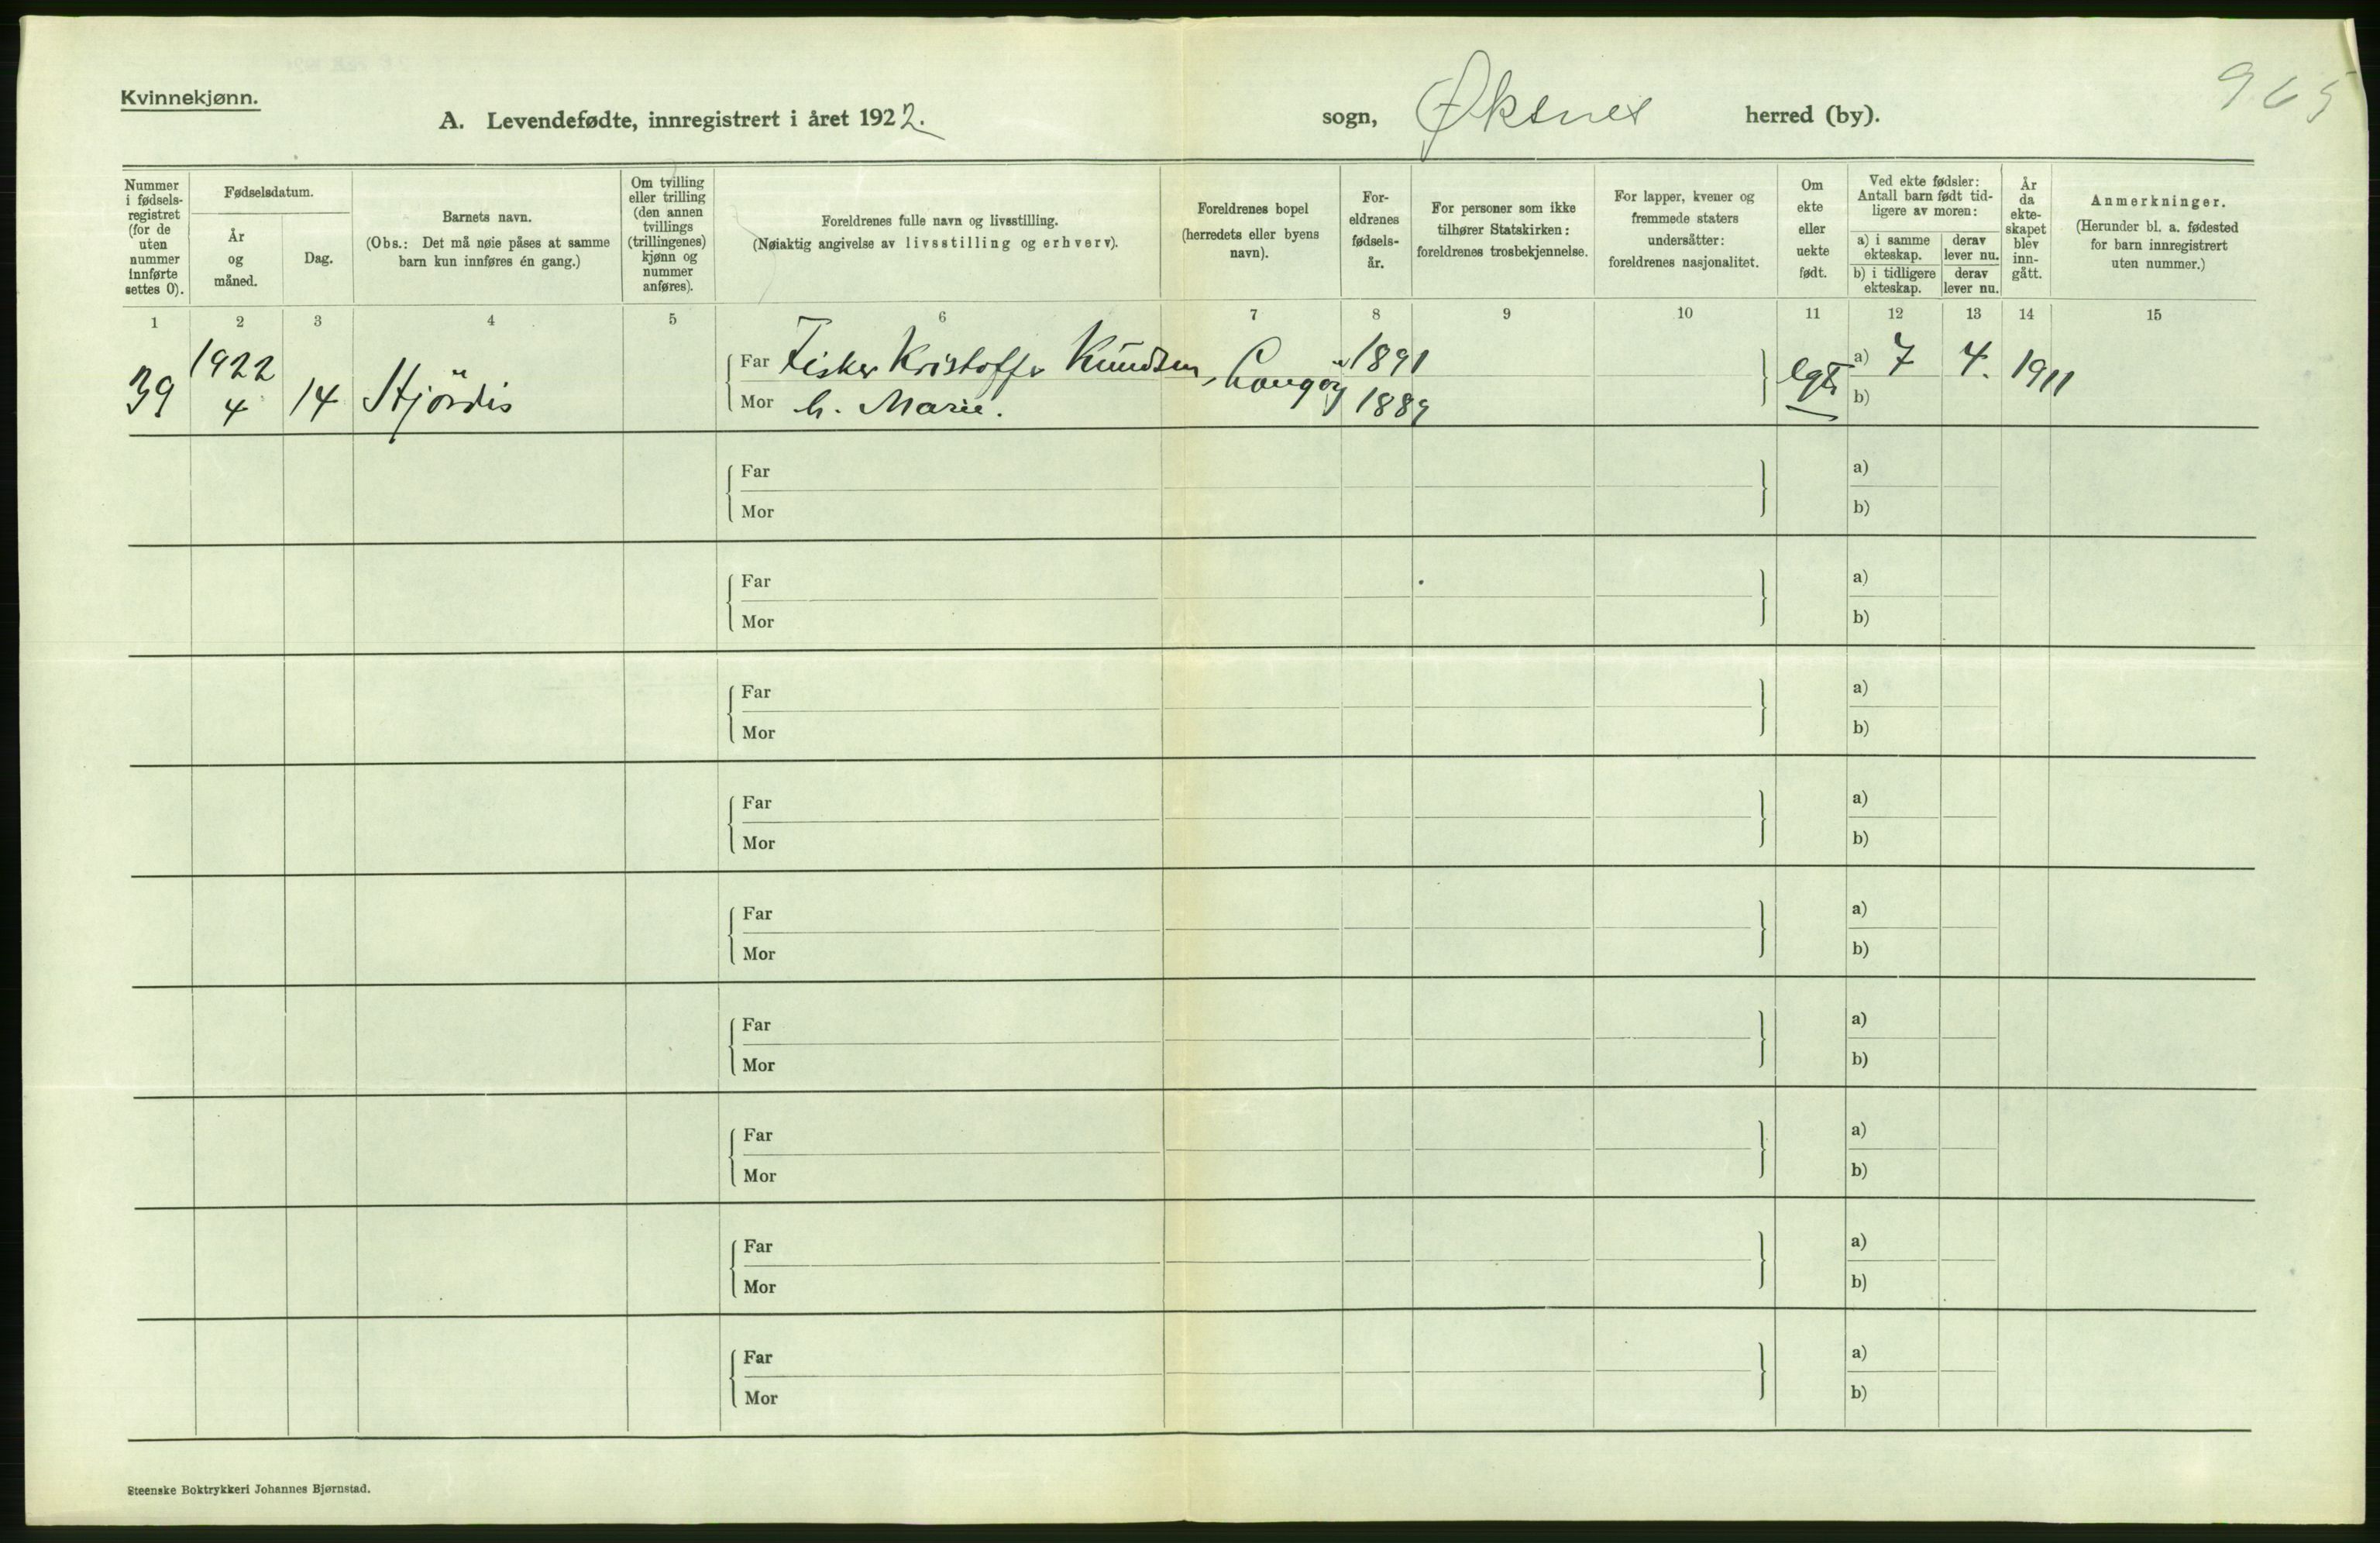 Kvinnekjønn.
A. Levendefødte, innregistrert i året 1922.
sogn, Øksnes herred (by).
965
Nummer i fødsels- registret (for de uten nummer innførte settes 0).
Fødselsdatum.
År og måned.
Dag.
Barnets navn.
(Obs.: Det må nøie påses at samme barn kun innføres én gang.)
Om tvilling eller trilling (den annen tvillings (trillingenes) kjønn og nummer anføres).
Foreldrenes fulle navn og livsstilling.
(Nøiaktig angivelse av livsstilling og erhverv).
Foreldrenes bopel (herredets eller byens navn).
For- eldrenes fødsels- år.
For personer som ikke tilhører Statskirken: foreldrenes trosbekjennelse.
For lapper, kvener og fremmede staters undersåtter: foreldrenes nasjonalitet.
Om ekte eller uekte født.
Ved ekte fødsler: Antall barn født tid- ligere av moren:
a) i samme ekteskap.
derav lever nu.
b) i tidligere ekteskap.
derav lever nu.
År da ekte- skapet blev inn- gått.
Anmerkninger.
(Herunder bl. a. fødested for barn innregistrert uten nummer.)
1 2 3 4 5 6 7 8 9 10 11 12 13 14 15
39 1922 4 14 Hjördis
Far Fisker Kristoffer Knudsen, Langöy 1891
Mor h. Marie. 1889
egte a) 7 4. 1911
b)
Far a)
Mor b)
Far a)
Mor b)
Far a)
Mor b)
Far a)
Mor b)
Far a)
Mor b)
Far a)
Mor b)
Far a)
Mor b)
Far a)
Mor b)
Far a)
Mor b)
Steenske Boktrykkeri Johannes Bjørnstad.